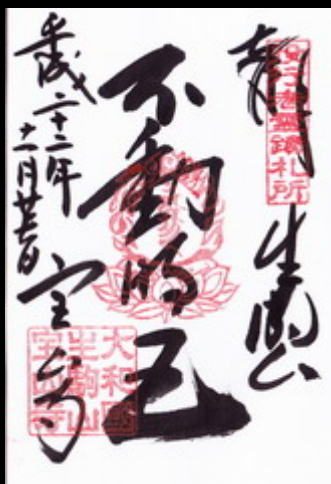 奉拝
役行者霊蹟札所
生駒山
不動明王
平成二十二年
宝山寺
大和國
生駒山
宝山寺